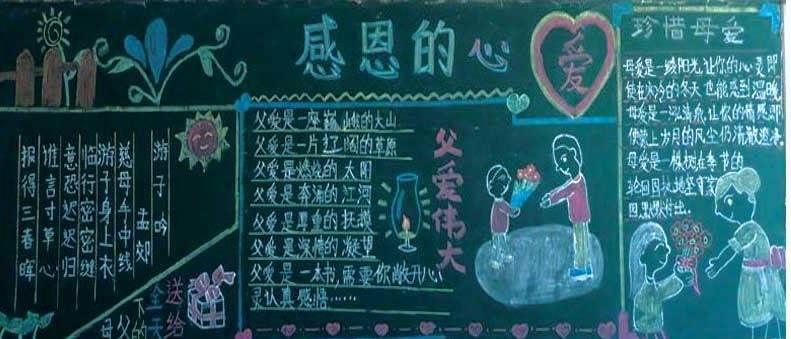 感恩的心
爱
游子吟
孟郊
慈母手中线
游子身上衣
临行密密缝
意恐迟迟归
谁言寸草心
报得三春晖
送给
全天
下的
父
母
父爱是一座巍峨的大山
父爱是一片辽阔的草原
父爱是燃烧的太阳
父爱是奔涌的江河
父爱是厚重的抚摸
父爱是深情的凝望
父爱是一本书,需要你敞开心
灵认真感悟……
父爱伟大
珍惜母爱
母爱是一缕阳光,让你的心灵即
使在寒冷的冬天也能感到温暖
母爱是一泓清泉,让你的情感即
使蒙上岁月的风尘仍清澈
母爱是一棵树在季节的
轮回固执地坚守家
园 付出